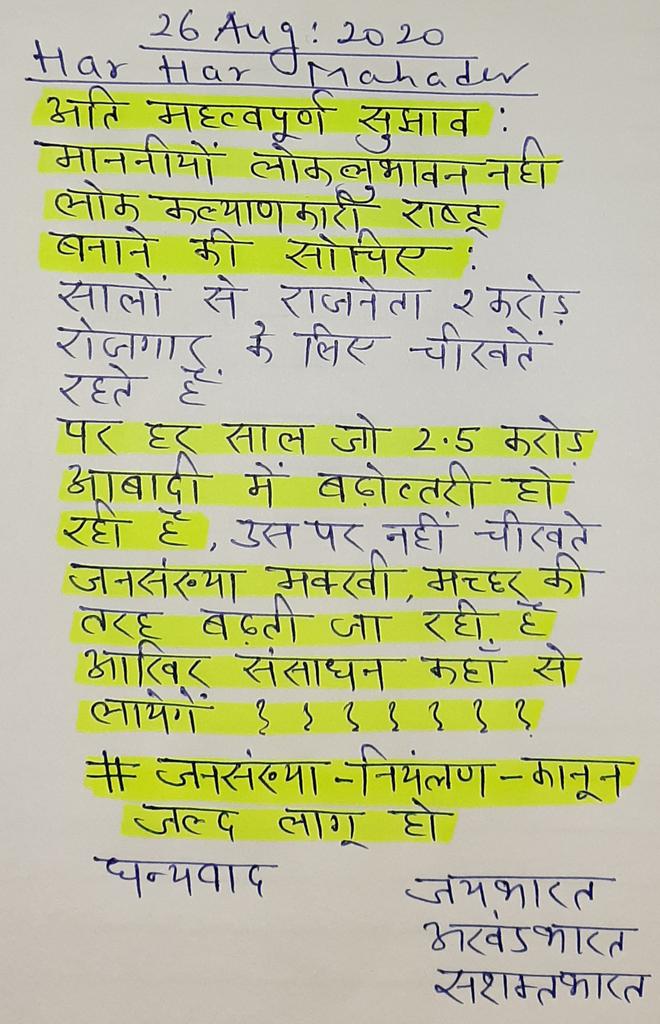 26 Aug: 2020
Har Har Mahadev
अति महत्वपूर्ण सुझाव :
माननीयों लोकलुभावन नही
लोक कल्याणकारी राष्ट्र
बनाने की सोचिए :
सालों से राजनेता २ करोड़
रोजगार के लिए चीखतें
रहते हैं
पर हर साल जो 2.5 करोड़
आबादी में बढ़ोत्तरी हो
रही है, उस पर नहीं चीखते
जनसंख्या मक्खी, मच्छर की
तरह बढ़ती जा रही है
आखिर संसाधन कहाँ से
लायेगें ? ? ? ? ? ? ?
# जनसंख्या - नियंत्रण - कानून
जल्द लागू हो
धन्यवाद
जयभारत
अखंडभारत
सशक्तभारत